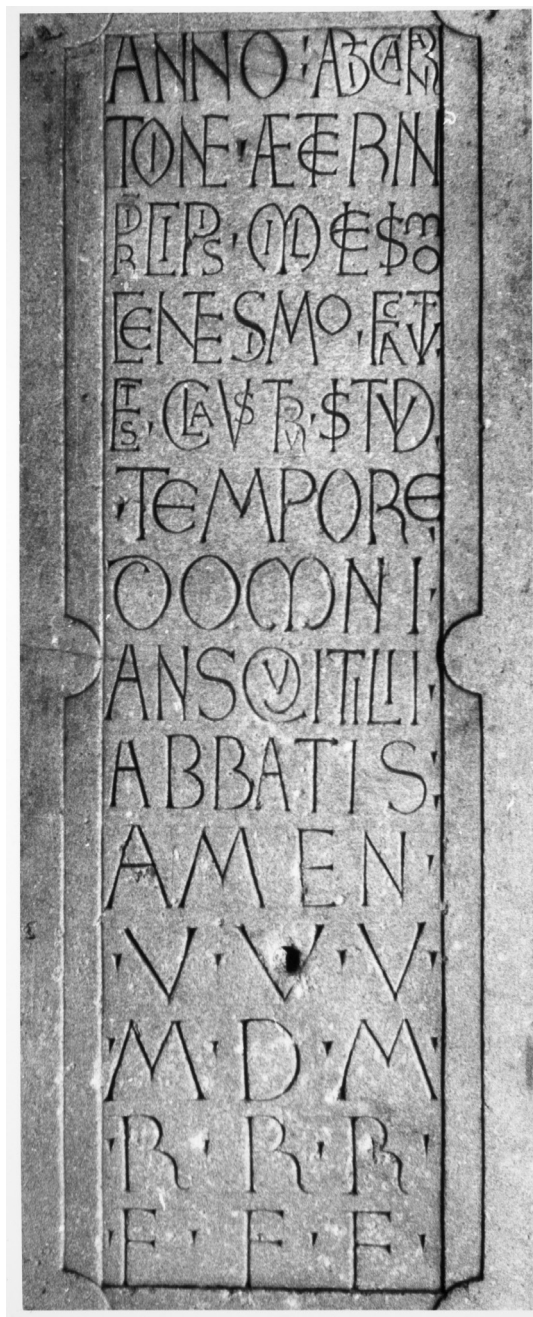 ANNO : AB INCARNA
TIONE · ÆTERNI
PRINCIPIS · MILLESIMO
CENTESIMO · FACTVM
EST · CLAVSTRVM · ISTVD ·
· TEMPORE ·
DOMNI ·
ANSQVITILII ·
ABBATIS :
AMEN ·
· V · V · V ·
· M · D · M ·
· R · R · R ·
· F · F · F ·